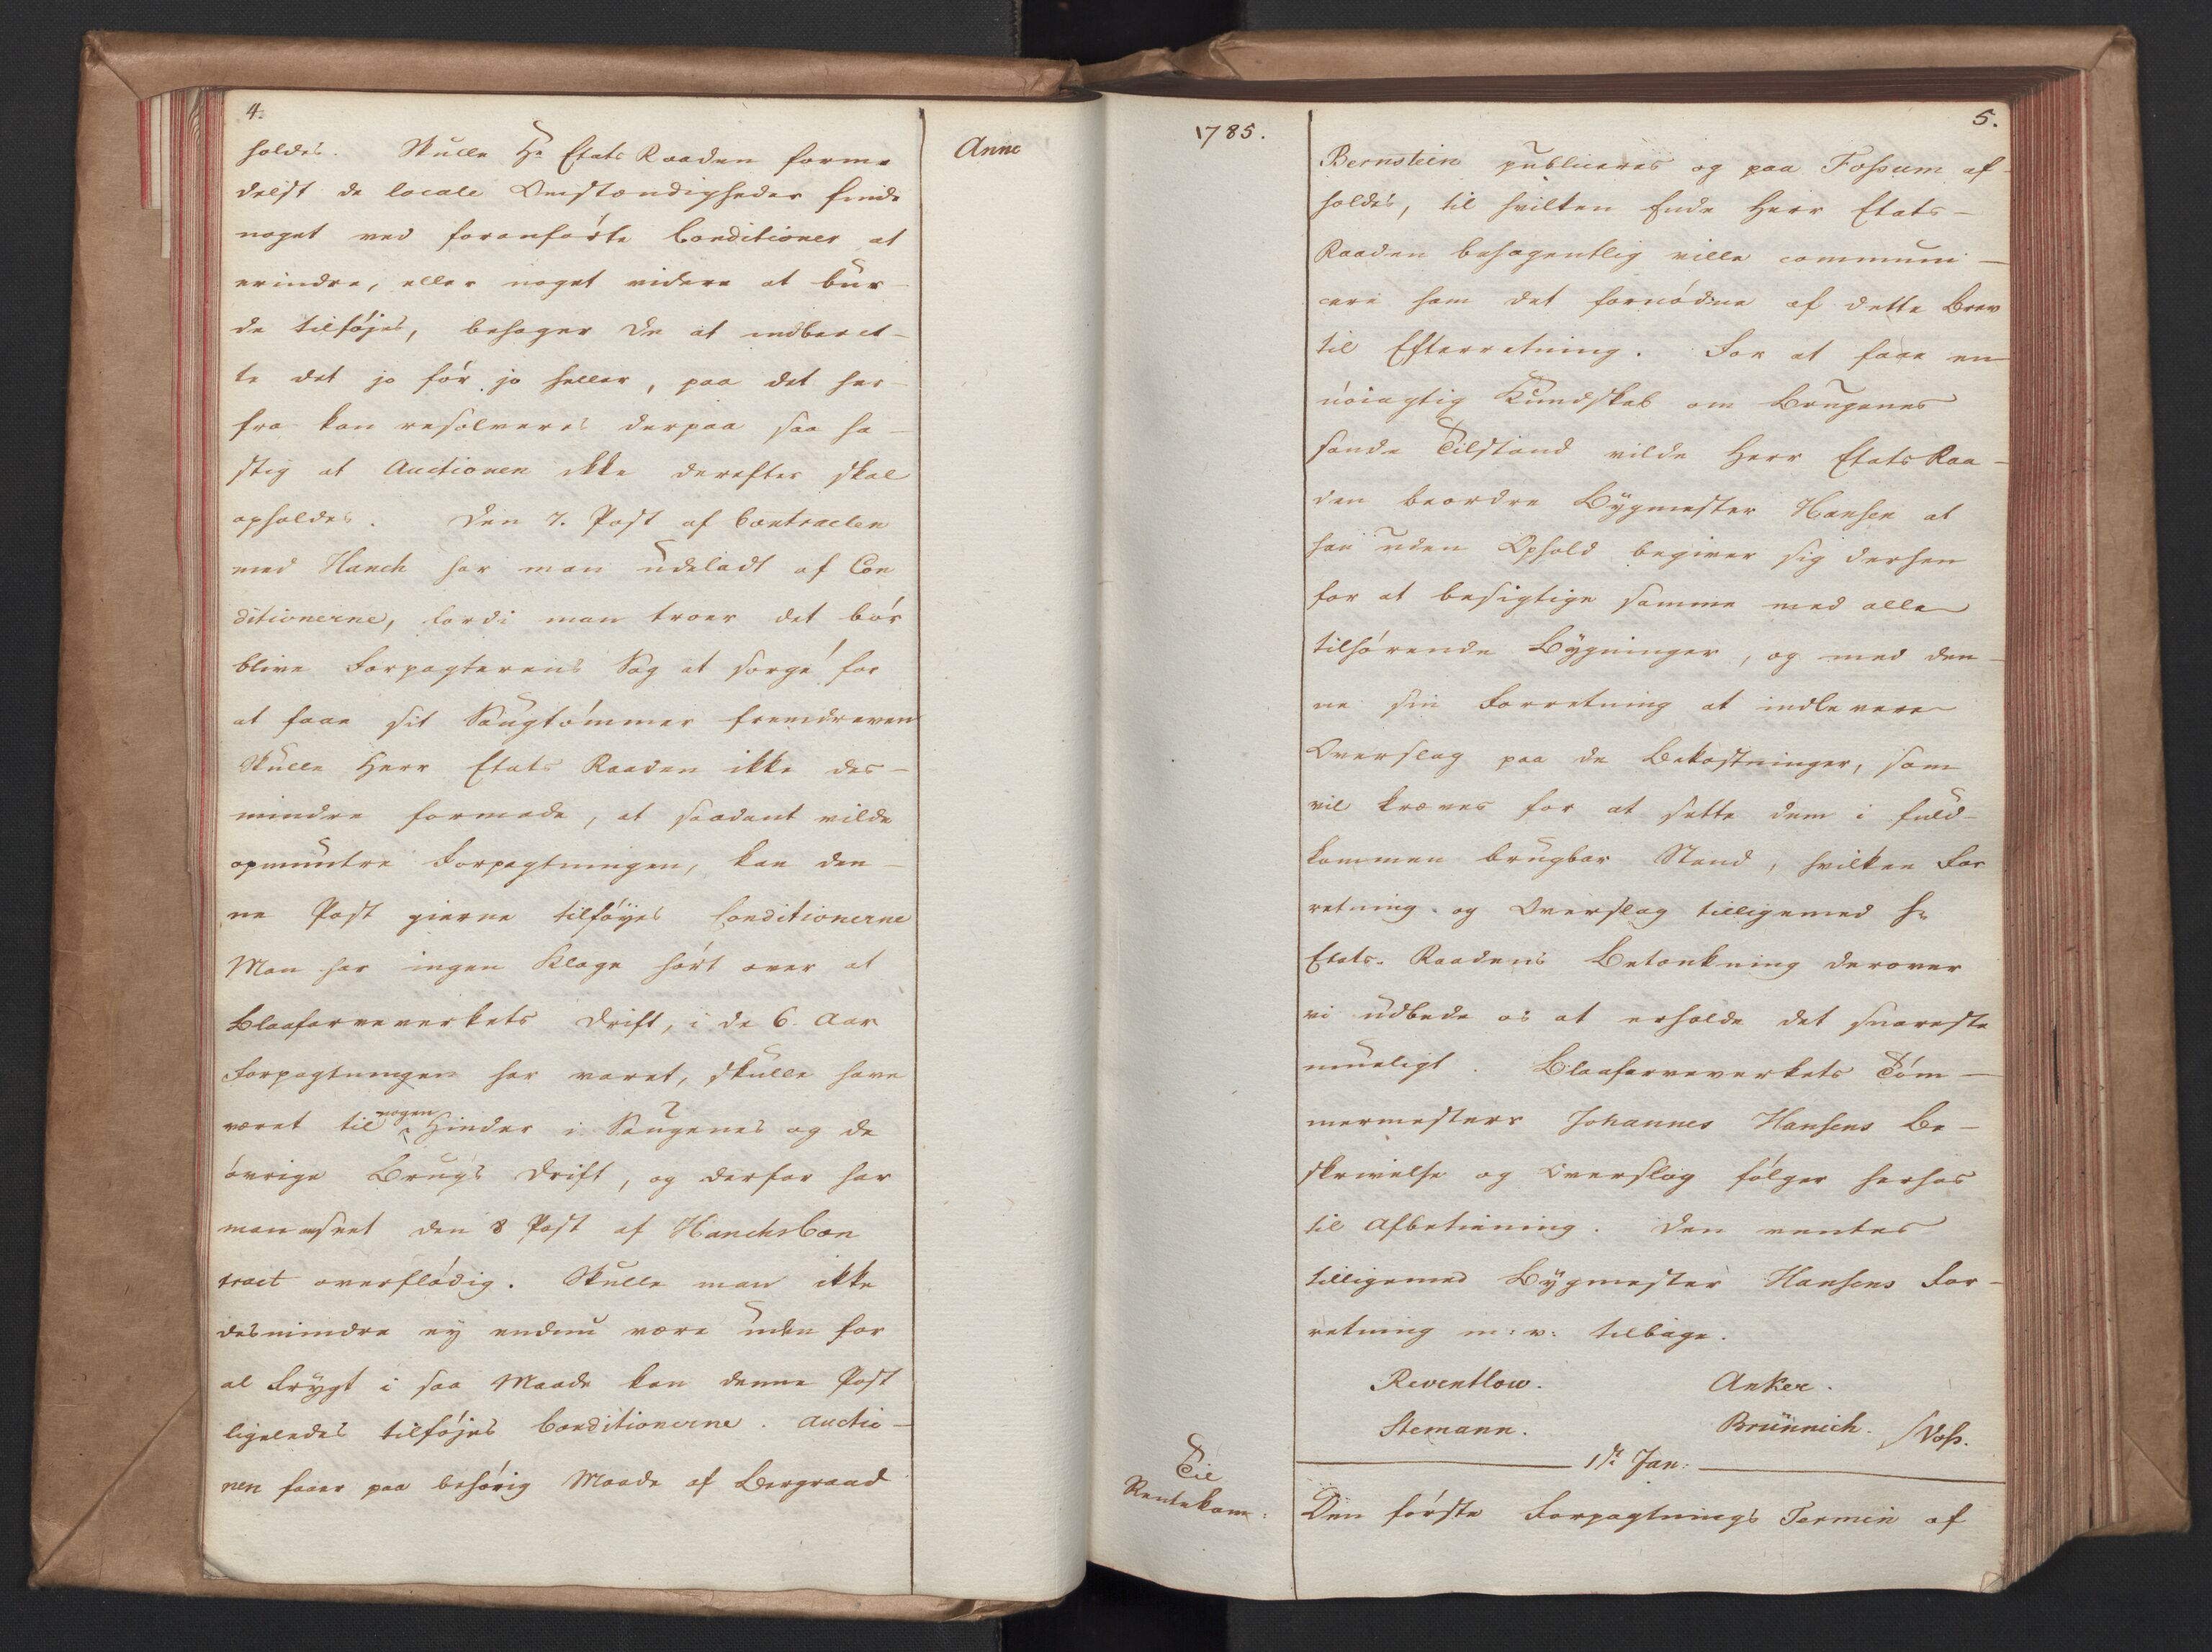 4.
holdes. Skulle Hr Etats Raaden forme
delst de locale Omstændigheder finde
noget ved foranførte Conditioner at
erindre, eller noget videre at bur-
de tilføjes, behager De at indberet-
te det jo før jo heller, paa det her-
fra kan resolveres derpaa saa ha-
stig at Auctionen ikke derefter skal
opholdes. Den 7. Post af Contracten
med Hanch har man udeladt af Con
ditionerne, fordi man troer det bør
blive Forpagterens Sag at sørge for
at faae sit Saugtømmer fremdreven
Skulle Herr Etats Raaden ikke des-
mindre formede, at saadant vilde
opmuntre Forpagtningen, kan den-
ne Post gierne tilføyes Conditionerne
Man har ingen Klage hørt over at
Blaafarveverkets Drift, i de 6. Aar
Forpagtningen har varet, skulle have
været til nogen Hinder i Saugenes og de
øvrige Brugs Drift, og derfor har
man anseet den 8 Post af Hanchs Con
tract overflødig. Skulle man ikke
desmindre ey endnu være uden for
al Frygt i saa Maade kan denne Post
ligeledes tilføjes Conditionerne. Auctio-
nen faaer paa behørig Maade af Bergraad
Anno
1785.
5.
Bernstein publiceres og paa Fossum af-
holdes, til hvilken Ende Herr Etats-
Raaden behagentlig ville communi-
cere ham det fornødne af dette Brev
til Efterretning. For at faae en
nøiagtig Kundskab om Brugenes
sande Tilstand vilde Herr Etats Raa-
den beordre Bygmester Hansen at
han uden Ophold begiver sig derhen
for at besigtige samme med alle
tilhørende Bygninger, og med den-
ne sin Forretning at indlevere
Overslag paa de Bekostninger, som
vil kræves for at sette dem i fuld-
kommen brugbar Stand, hvilken For
retning og Overslag tilligemed Hr
Etats-Raadens Betænkning derover
vi udbede os at erholde det snareste
mueligt. Blaafarveverkets Tøm-
mermesters Johannes Hansens Be-
skrivelse og Overslag følger herhos
til Afbetiening. Den ventes
tilligemed Bygmester Hansens For-
retning m: v: tilbage.
Reventlow. Anker.
Stemann. Brünnich. / Voss.
1ste Jan:
Til
Rentekam:
Den første Forpagtnings Termin af